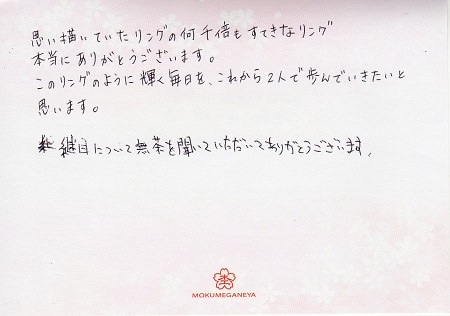 思い描いていたリングの何千倍もすてきなリング
本当にありがとうございます。
このリングのように輝く毎日を、これから2人で歩んでいきたいと
思います。
継目について無茶を聞いていただいてありがとうございます。
MOKUMEGANEYA